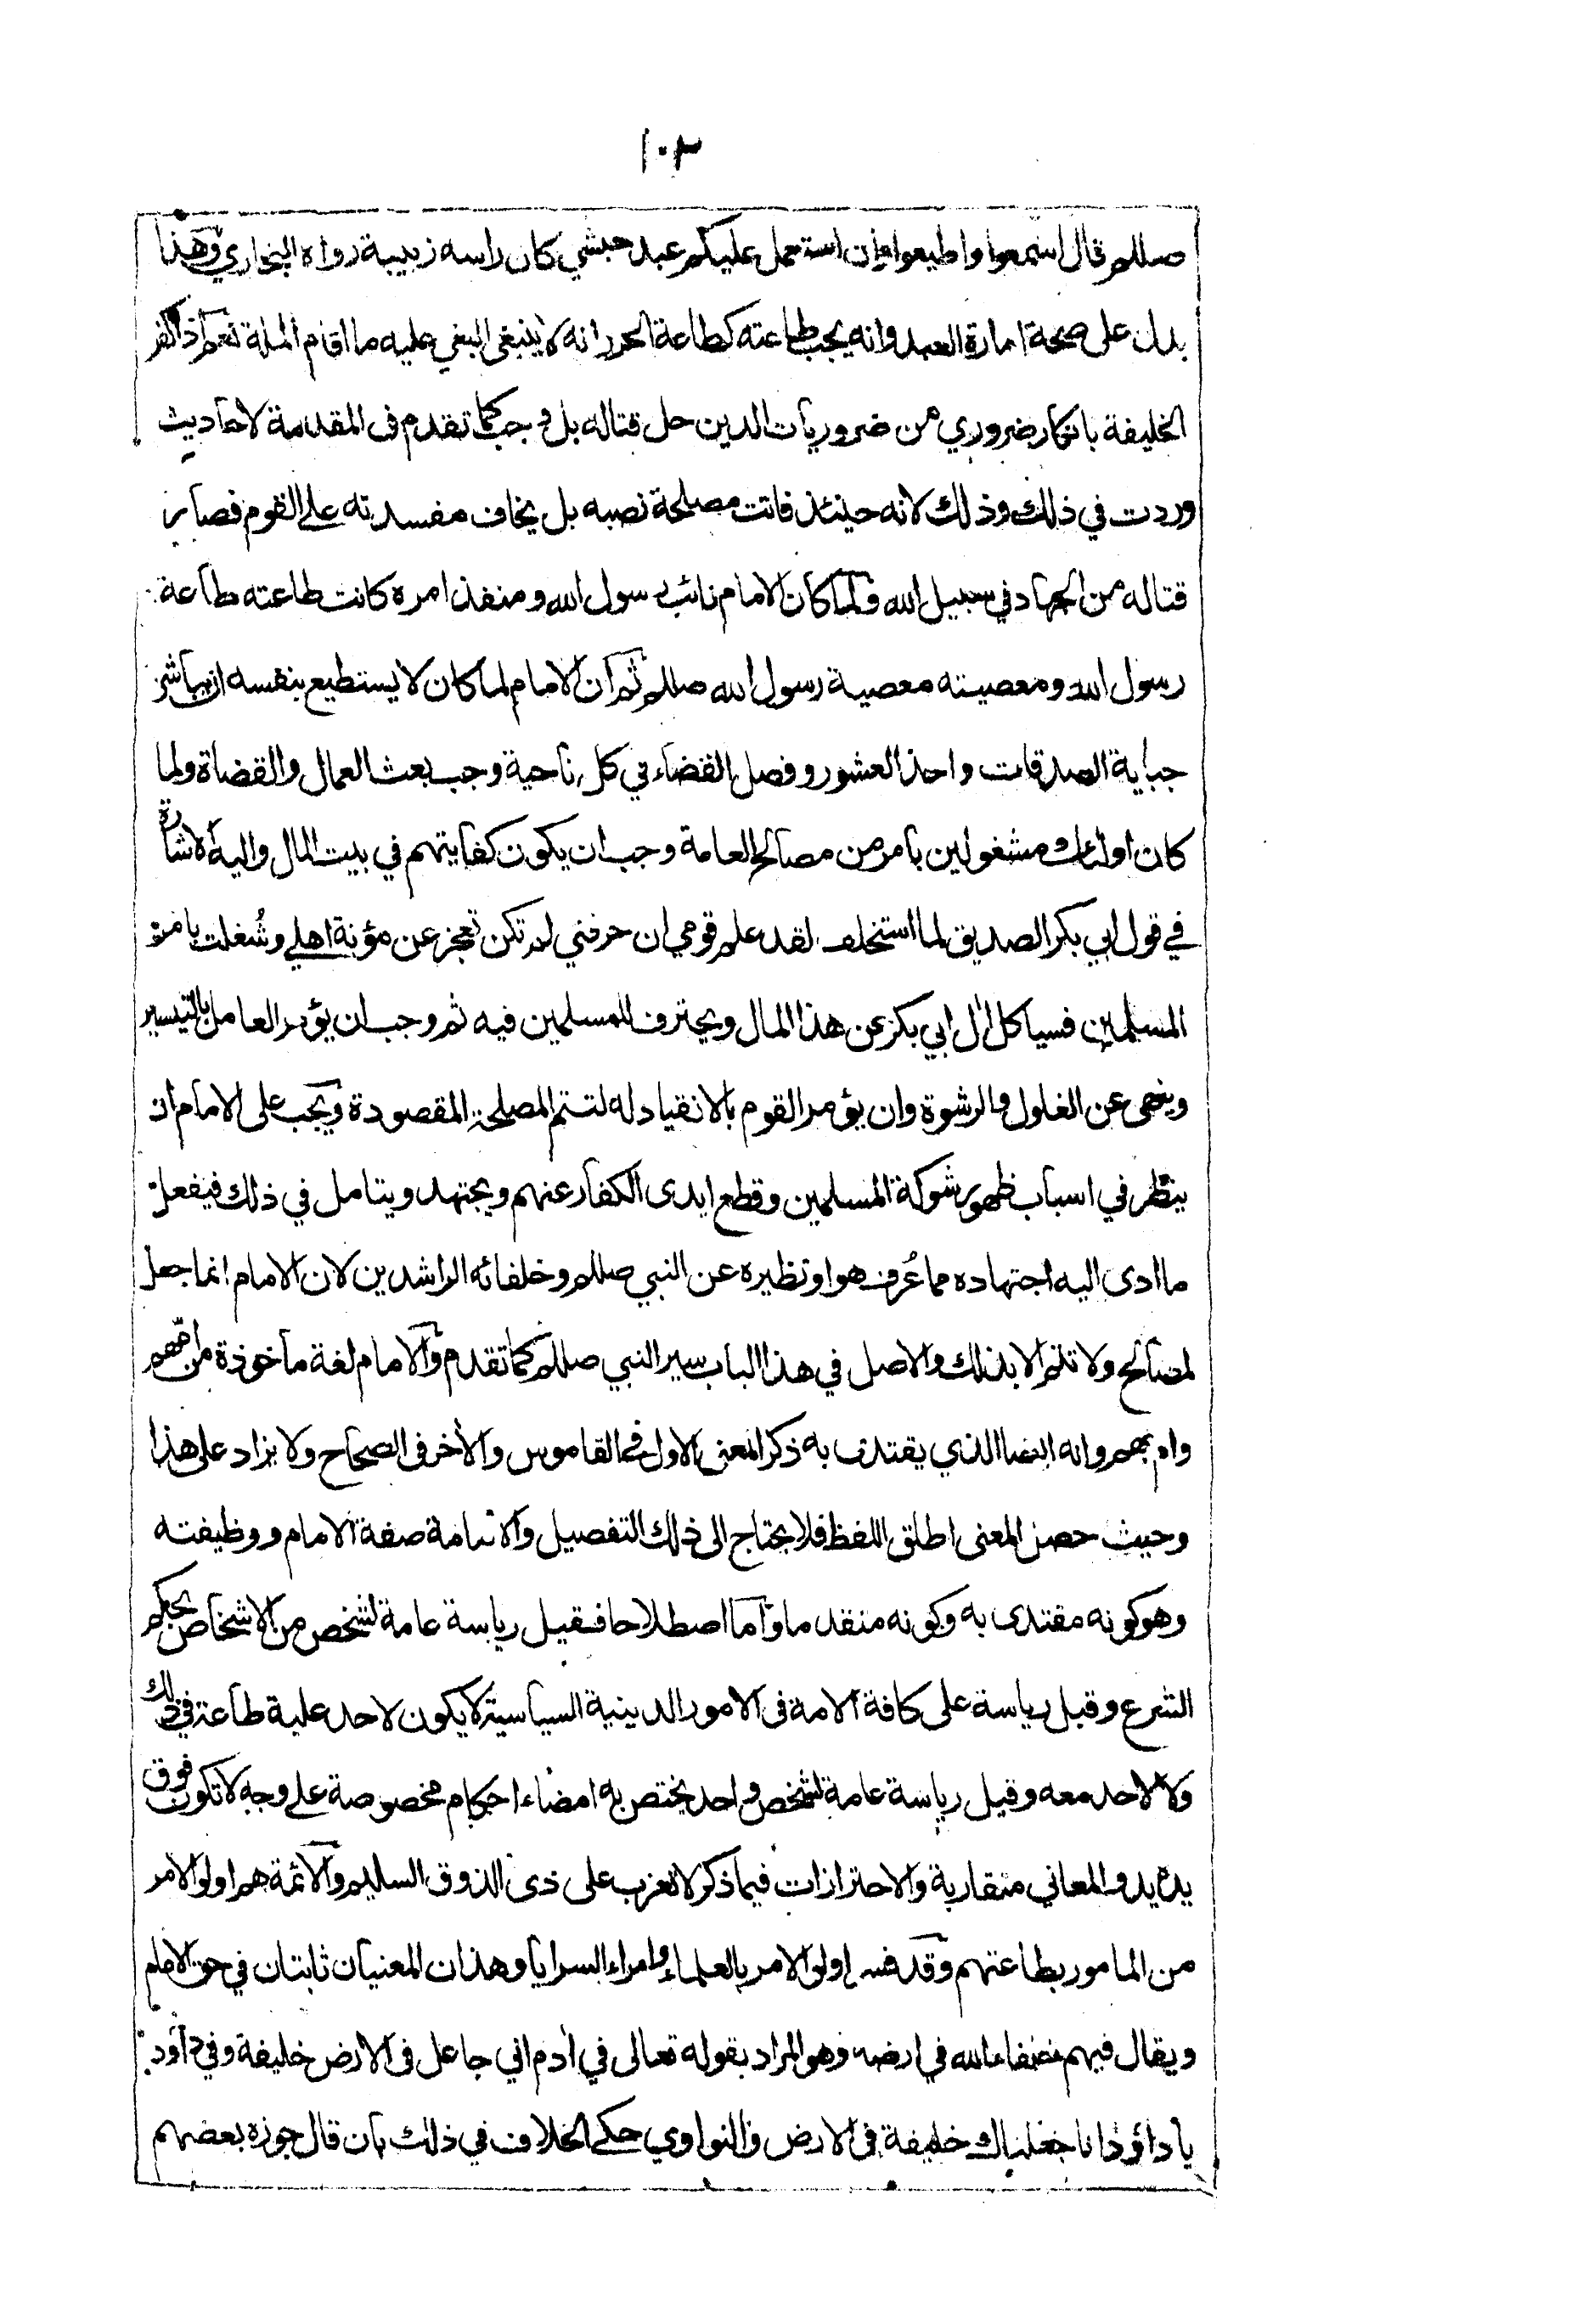 ١٠٣
صللم قال اسمعوا واطيعوا وان استعمل عليكم عبد حبشي كان راسه زبيبة رواه البخاري وهذا
يدل على صحة امارة العبد وانه يجب طاعته كطاعة الحر وانه لا ينبغي البغي عليه ما اقام الملة نعم اذا كفر
الخليفة بانكار ضروري من ضروريات الدين حل قتاله بل وجب كما تقدم فى المقدمة لاحاديث
وردت في ذلك وذلك لانه حينئذ فاتت مصلحة نصبه بل يخاف مفسدته على القوم فصار
قتاله من الجهاد في سبيل الله ولما كان الامام نائب رسول الله ومنفذ امره كانت طاعته طاعة
رسول الله ومعصيته معصية رسول الله صللم ثم ان الامام لما كان لا يستطيع بنفسه ان يباشر
جباية الصدقات واخذ العشور وفصل القضاء في كل ناحية وجب بعث العمال والقضاة ولما
كان اولئك مشغولين بامر من مصالح العامة وجب ان يكون كفايتهم في بيت المال واليه الاشارة
في قول ابي بكر الصديق لما استخلف لقد علم قومي ان حرفتي لم تكن تعجز عن مؤنة اهلي وشُغلت بامر
المسلمين فسياكل ال ابي بكر عن هذا المال ويحترف للمسلمين فيه ثم وجب ان يؤمر العامل بالتيسير
وينهى عن الغلول والرشوة وان يؤمر القوم بالانقياد له لتتم المصلحة المقصودة ويجب على الامام ان
ينظر في اسباب ظهور شوكة المسلمين وقطع ايدى الكفار عنهم ويجتهد ويتامل في ذلك فيفعل
ما ادى اليه اجتهاده مما عُرف هو او نظيره عن النبي صللم وخلفائه الراشدين لان الامام انما جعل
لمصالح ولا تتم الا بذلك والاصل في هذا الباب سير النبي صللم كما تقدم والامام لغة ماخوذة من امّهم
وام بهم وانه ايضا الذي يقتدى به ذكر المعنى الاول في القاموس والآخر فى الصحاح ولا يزاد على هذا
وحيث حصل المعنى اطلق اللفظ فلا يحتاج الى ذلك التفصيل والامامة صفة الامام ووظيفته
وهو كونه مقتدى به وكونه متقدما واما اصطلاحا فقيل رياسة عامة لشخص من الاشخاص بحكم
الشرع وقيل رياسة على كافة الامة فى الامور الدينية السياسية لا يكون لاحد عليه طاعة في ذلك
ولا لاحد معه وقيل رياسة عامة لشخص واحد يختص به امضاء احكام مخصوصة على وجه لا تكون فوق
يده يد والمعاني متقاربة والاحترازات فيما ذكر لا تعزب على ذى الذوق السليم والائمة هم اولو الامر
من المامور بطاعتهم وقد فسر اولو الامر بالعلماء وامراء السرايا وهذان المعنيان ثابتان في حق الامام
ويقال فيهم خلفاء الله في ارضه وهو المراد بقوله تعالى في آدم اني جاعل فى الارض خليفة وفي داود
يا داؤد انا جعلناك خليفة فى الارض والنواوي حكى الخلاف في ذلك بان قال جوزه بعضهم